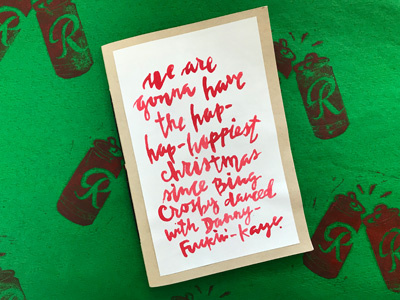 we are
gonna have
the hap-
hap-happiest
christmas
since Bing
Crosby danced
with Danny-
Fuckin-Kaye.
R
R
R
R
R